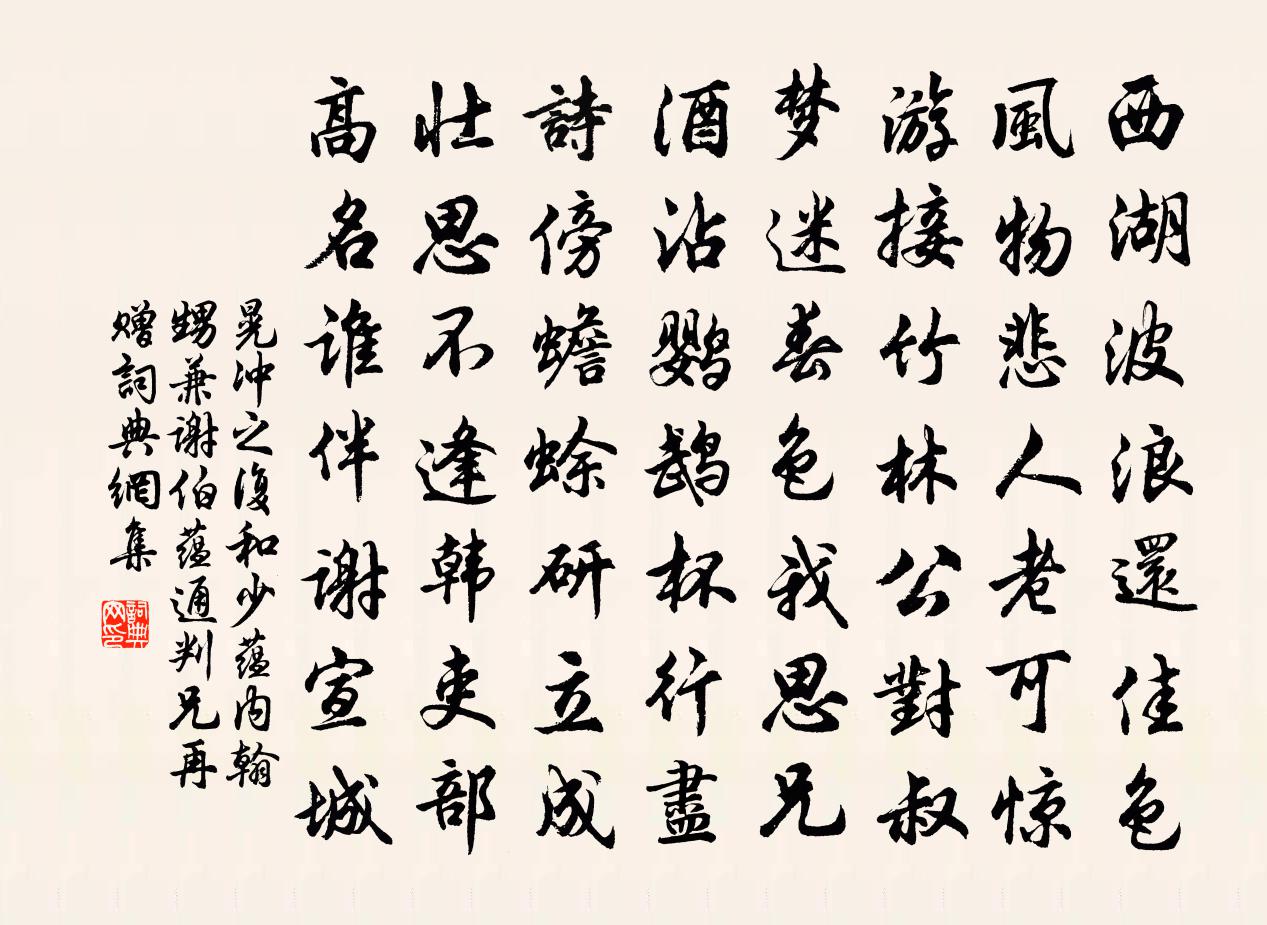 西湖波浪還佳色
風物悲人老可惊
游接竹林公對叔
梦迷春色我思兄
酒沾鸚鵡杯行盡
詩傍蟾蜍研立成
壮思不逢韩吏部
高名谁伴謝宣城
晁冲之復和少蕴内翰
甥兼謝伯蕴通判兄再
赠詞典網集
詞典网印